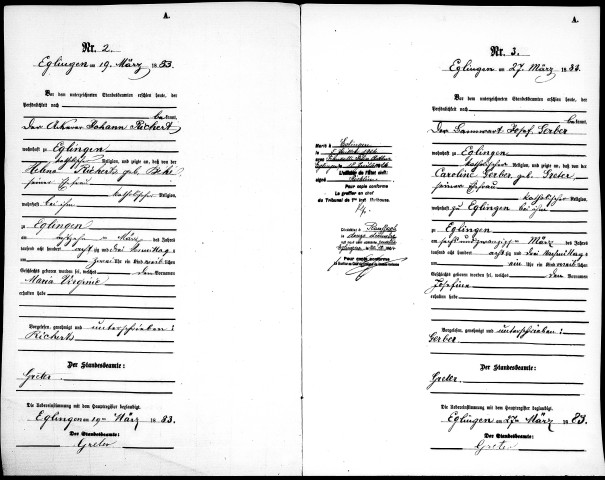 A.
Nr. 2.
Eglingen am 19. März 1883.
Vor dem unterzeichneten Standesbeamten erschien heute, der
Persönlichkeit nach
bekannt,
Der Ackerer Johann Richert
wohnhaft zu Eglingen
katholischer Religion, und zeigte an, daß von der
Helena Richert, geb.
seiner Ehefrau
katholischer Religion,
wohnhaft bei ihm
zu Eglingen
am März des Jahres
tausend acht hundert achtzig und drei Vormittags
um zwei Uhr ein Kind weiblichen
Geschlechts geboren worden sei, welches den Vornamen
Maria Virginie
erhalten habe
Vorgelesen, genehmigt und unterschrieben:
Richert
Der Standesbeamte:
Greter.
Die Uebereinstimmung mit dem Hauptregister beglaubigt.
Eglingen am 19ten März 1883.
Der Standesbeamte:
Greter
A.
Nr. 3.
Eglingen am 27. März 1883.
Vor dem unterzeichneten Standesbeamten erschien heute, der
Persönlichkeit nach
bekannt,
Der Bannwart Josef Gerber
wohnhaft zu Eglingen
katholischer Religion, und zeigte an, daß von der
Caroline Gerber, geb. Greter
seiner Ehefrau
katholischer Religion,
wohnhaft zu Eglingen bei ihm
zu Eglingen
am sechsundzwanzigsten März des Jahres
tausend acht hundert achtzig und drei Vormittags
um Uhr ein Kind weiblichen
Geschlechts geboren worden sei, welches den Vornamen
Josefina
erhalten habe
Vorgelesen, genehmigt und unterschrieben:
Gerber
Der Standesbeamte:
Greter.
Die Uebereinstimmung mit dem Hauptregister beglaubigt.
Eglingen am 27ten März 1883.
Der Standesbeamte:
Greter
Marié à Eglingen
L'officier de l'état civil:
signé
Pour copie conforme
Le greffier en chef
du Tribunal de 1re inst. Mulhouse.
Pour copie conforme